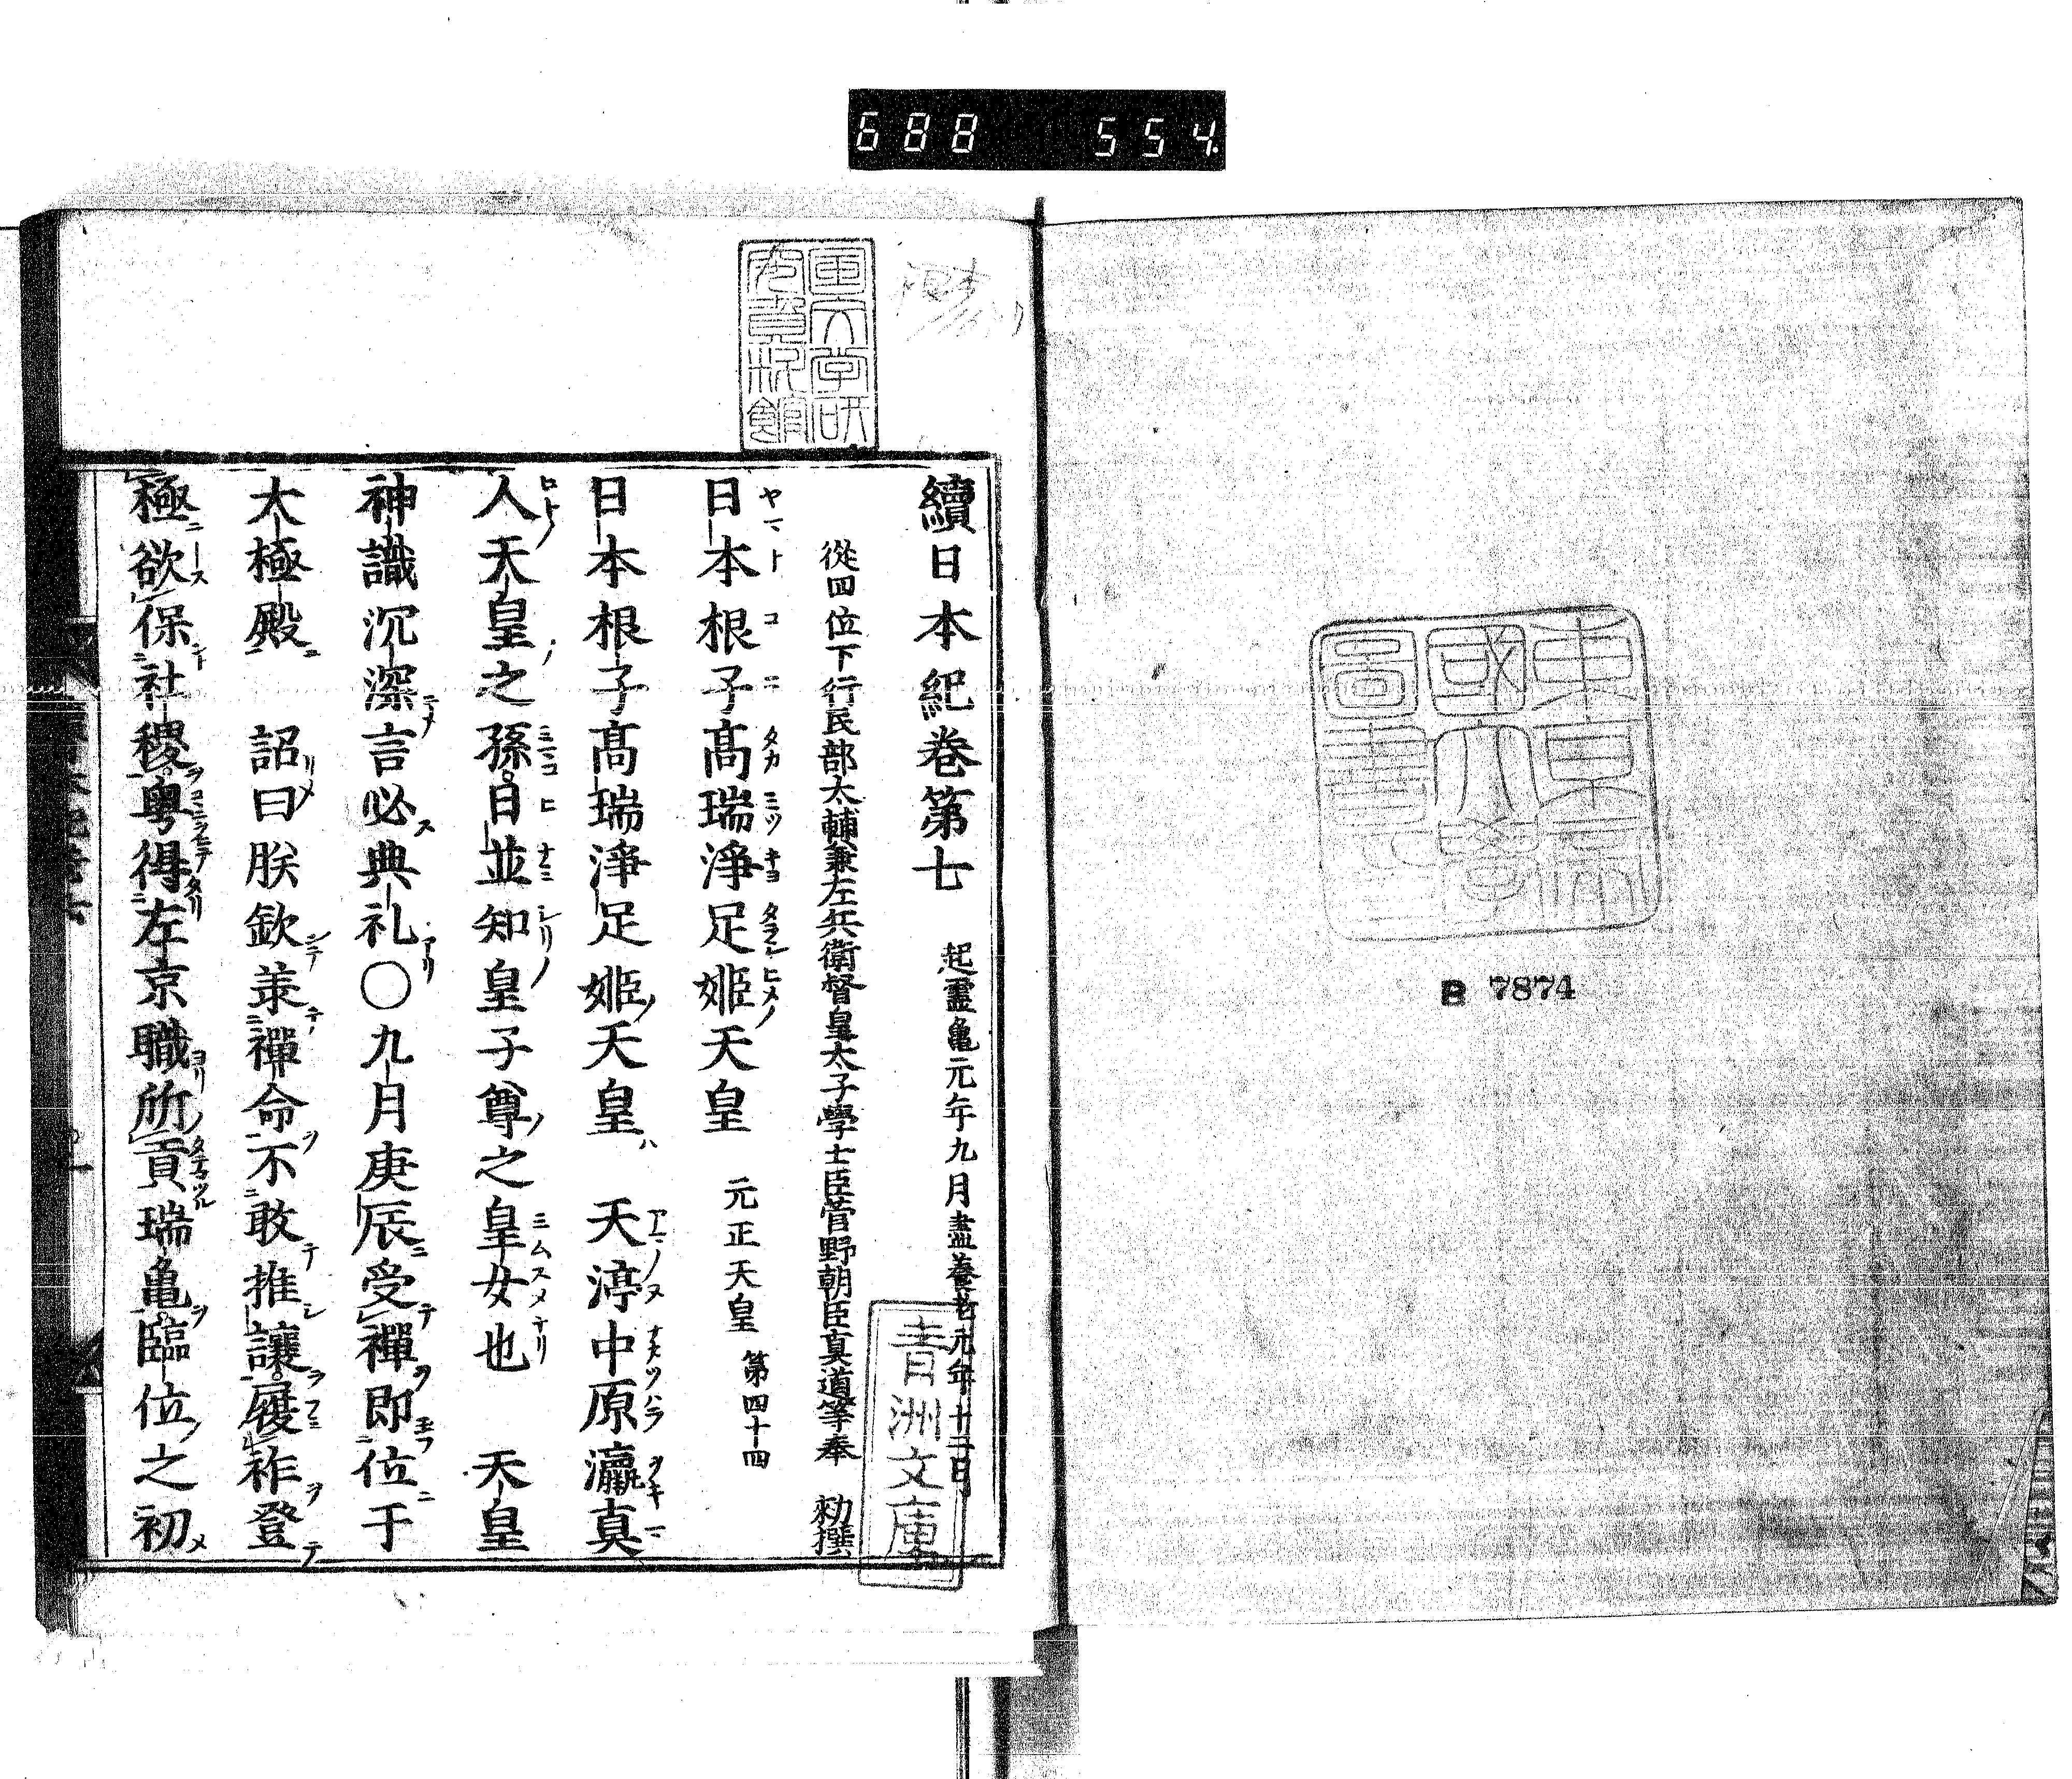 688 554.
B 7874
東京
帝國
大學
圖書
國文学研
究資料館
青洲文庫
續日本紀卷第七 起靈亀元年九月盡養老元年十二月
從四位下行民部大輔兼左兵衛督皇太子學士臣菅野朝臣真道等奉 勅撰
日本根子髙瑞淨足姫天皇 元正天皇 第四十四
日本根子髙瑞淨足姫天皇 天渟中原瀛真
人天皇之孫日並知皇子尊之皇女也 天皇
神識沉深言必典礼〇九月庚辰受禪即位于
大極殿 詔曰朕欽承禪命不敢推讓履祚登
極欲保社稷粤得左京職所貢瑞亀臨位之初